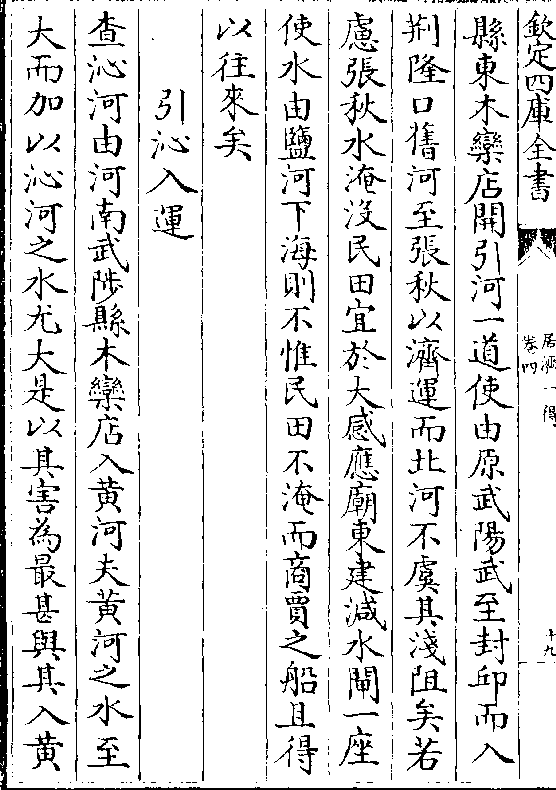 欽定四庫全書
居濟一得
卷四
十九
縣東木欒店開引河一道使由原武陽武至封邱而入
荆隆口舊河至張秋以濟運而北河不虞其淺阻矣若
慮張秋水淹沒民田宜於大感應廟東建減水閘一座
使水由鹽河下海則不惟民田不淹而商賈之船且得
以往來矣
引沁入運
查沁河由河南武陟縣木欒店入黄河夫黄河之水至
大而加以沁河之水尤大是以其害為最甚與其入黄